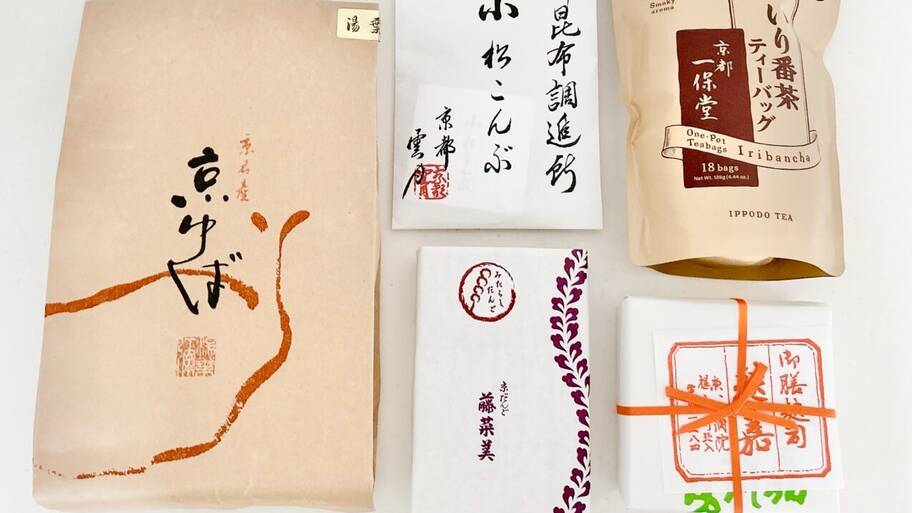 湯葉
京名産
京ゆば
昆布調進所
小松こんぶ
京都
雲月
Smoky
aroma
いり番茶
ティーバッグ
京都
一保堂
One-Pot
Teabags
Iribancha
18 bags
Net Wt. 126g (4.44 oz.)
IPPODO TEA
みたらし
だんご
京だんご
藤菜美
御膳麸司
嘉